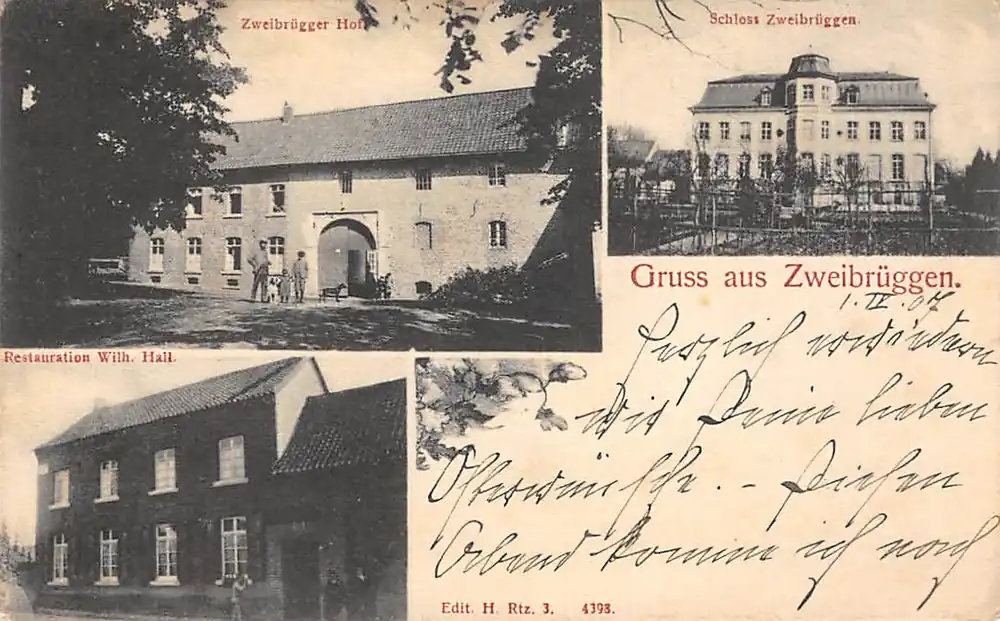 Zweibrügger Hof.
Schloss Zweibrüggen.
Gruss aus Zweibrüggen.
1. IV. 07
Herzlich erwidern
wir Deine lieben
Osterwünsche. - Diesen
Abend komme ich noch
Restauration Wilh. Hall.
Edit. H. Rtz. 3. 4398.